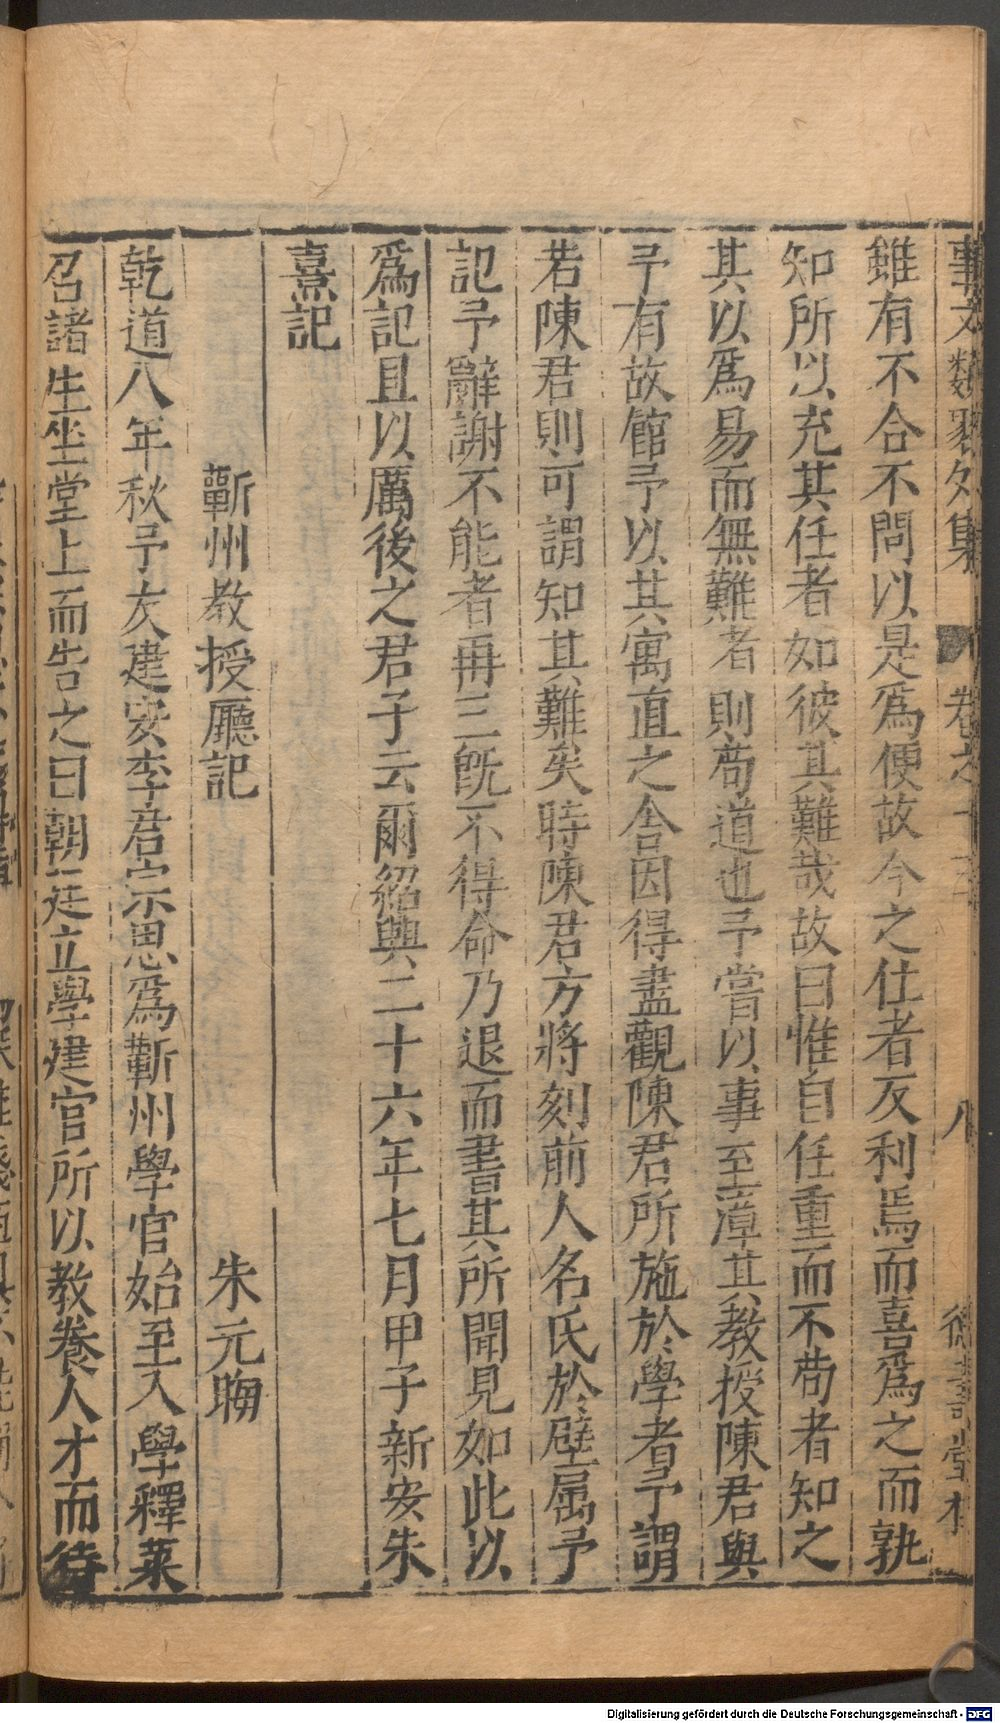 事文類聚外集 卷之十三 八 德壽堂梓
雖有不合不問以是爲便故今之仕者反利焉而喜爲之而孰
知所以充其任者如彼其難哉故曰惟自任重而不苟者知之
其以爲易而無難者則苟道也予嘗以事至漳其教授陳君與
予有故館予以其寓直之舎因得盡觀陳君所施於學者予謂
若陳君則可謂知其難矣時陳君方將刻前人名氏於壁屬予
記予辭謝不能者再三旣不得命乃退而書其所聞見如此以
爲記且以厲後之君子云爾紹興二十六年七月甲子新安朱
熹記
蘄州教授廳記 朱元晦
乾道八年秋予友建安李君宗思爲蘄州學官始至入學釋菜
召諸生坐堂上而告之曰朝廷立學建官所以教養人才而待
Digitalisierung gefördert durch die Deutsche Forschungsgemeinschaft - DFG